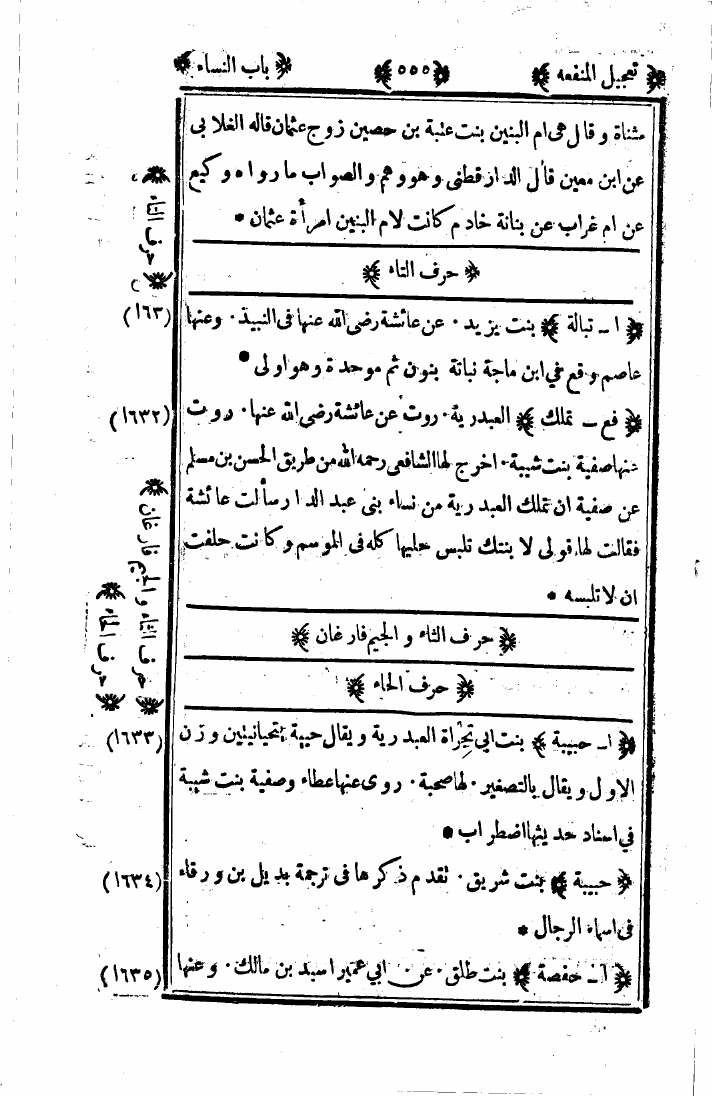 ﴿ تعجيل المنفعه ﴾ ﴿ ٥٥٥ ﴾ ﴿ باب النساء ﴾
مثناة وقال هى ام البنين بنت عتبة بن حصين زوج عثمان قاله الغلابى
عن ابن معين قال الدار قطنى وهو وهم والصواب ما رواه وكيع
عن ام غراب عن بنانة خادم كانت لام البنين امرأة عثمان *
﴿ حرف التاء ﴾
﴿ حرف التاء ﴾
﴿ ا ـ تبالة ﴾ بنت يزيد ٠ عن عائشة رضى الله عنها فى النبيذ ٠ وعنها (١٦٣)
عاصم وقع فى ابن ماجة نبانة بنون ثم موحدة وهو اولى *
﴿ فع ـ تملك ﴾ العبدرية ٠ روت عن عائشة رضى الله عنها ٠ روت (١٦٣٢)
عنها صفية بنت شيبة ٠ اخرج لها الشافعى رحمه الله من طريق الحسن بن مسلم
عن صفية ان تملك العبدرية من نساء بنى عبد الدار سألت عائشة
فقالت لها قولى لا بنتك تلبس حليها كله فى الموسم وكانت حلفت
ان لا تلبسه *
﴿ حرف الثاء و الجيم فارغان ﴾
﴿ حرف الثاء و الجيم فارغان ﴾
﴿ حرف الحاء ﴾
﴿ حرف الحاء ﴾
﴿ ا ـ حبيبة ﴾ بنت ابي تجراة العبدرية ويقال حيية بتحيانيتين وزن (١٦٣٣)
الاول ويقال بالتصغير ٠ لها صحبة ٠ روى عنها عطاء وصفية بنت شيبة
فى اسناد حديثها اضطراب *
﴿ حبيبة ﴾ بنت شريق ٠ تقدم ذكرها فى ترجمة بديل بن ورقاء (١٦٣٤)
فى اسماء الرجال *
﴿ ا ـ حفصة ﴾ بنت طلق ٠ عن ٠ ابي عمير اسيد بن مالك ٠ وعنها (١٦٣٥)